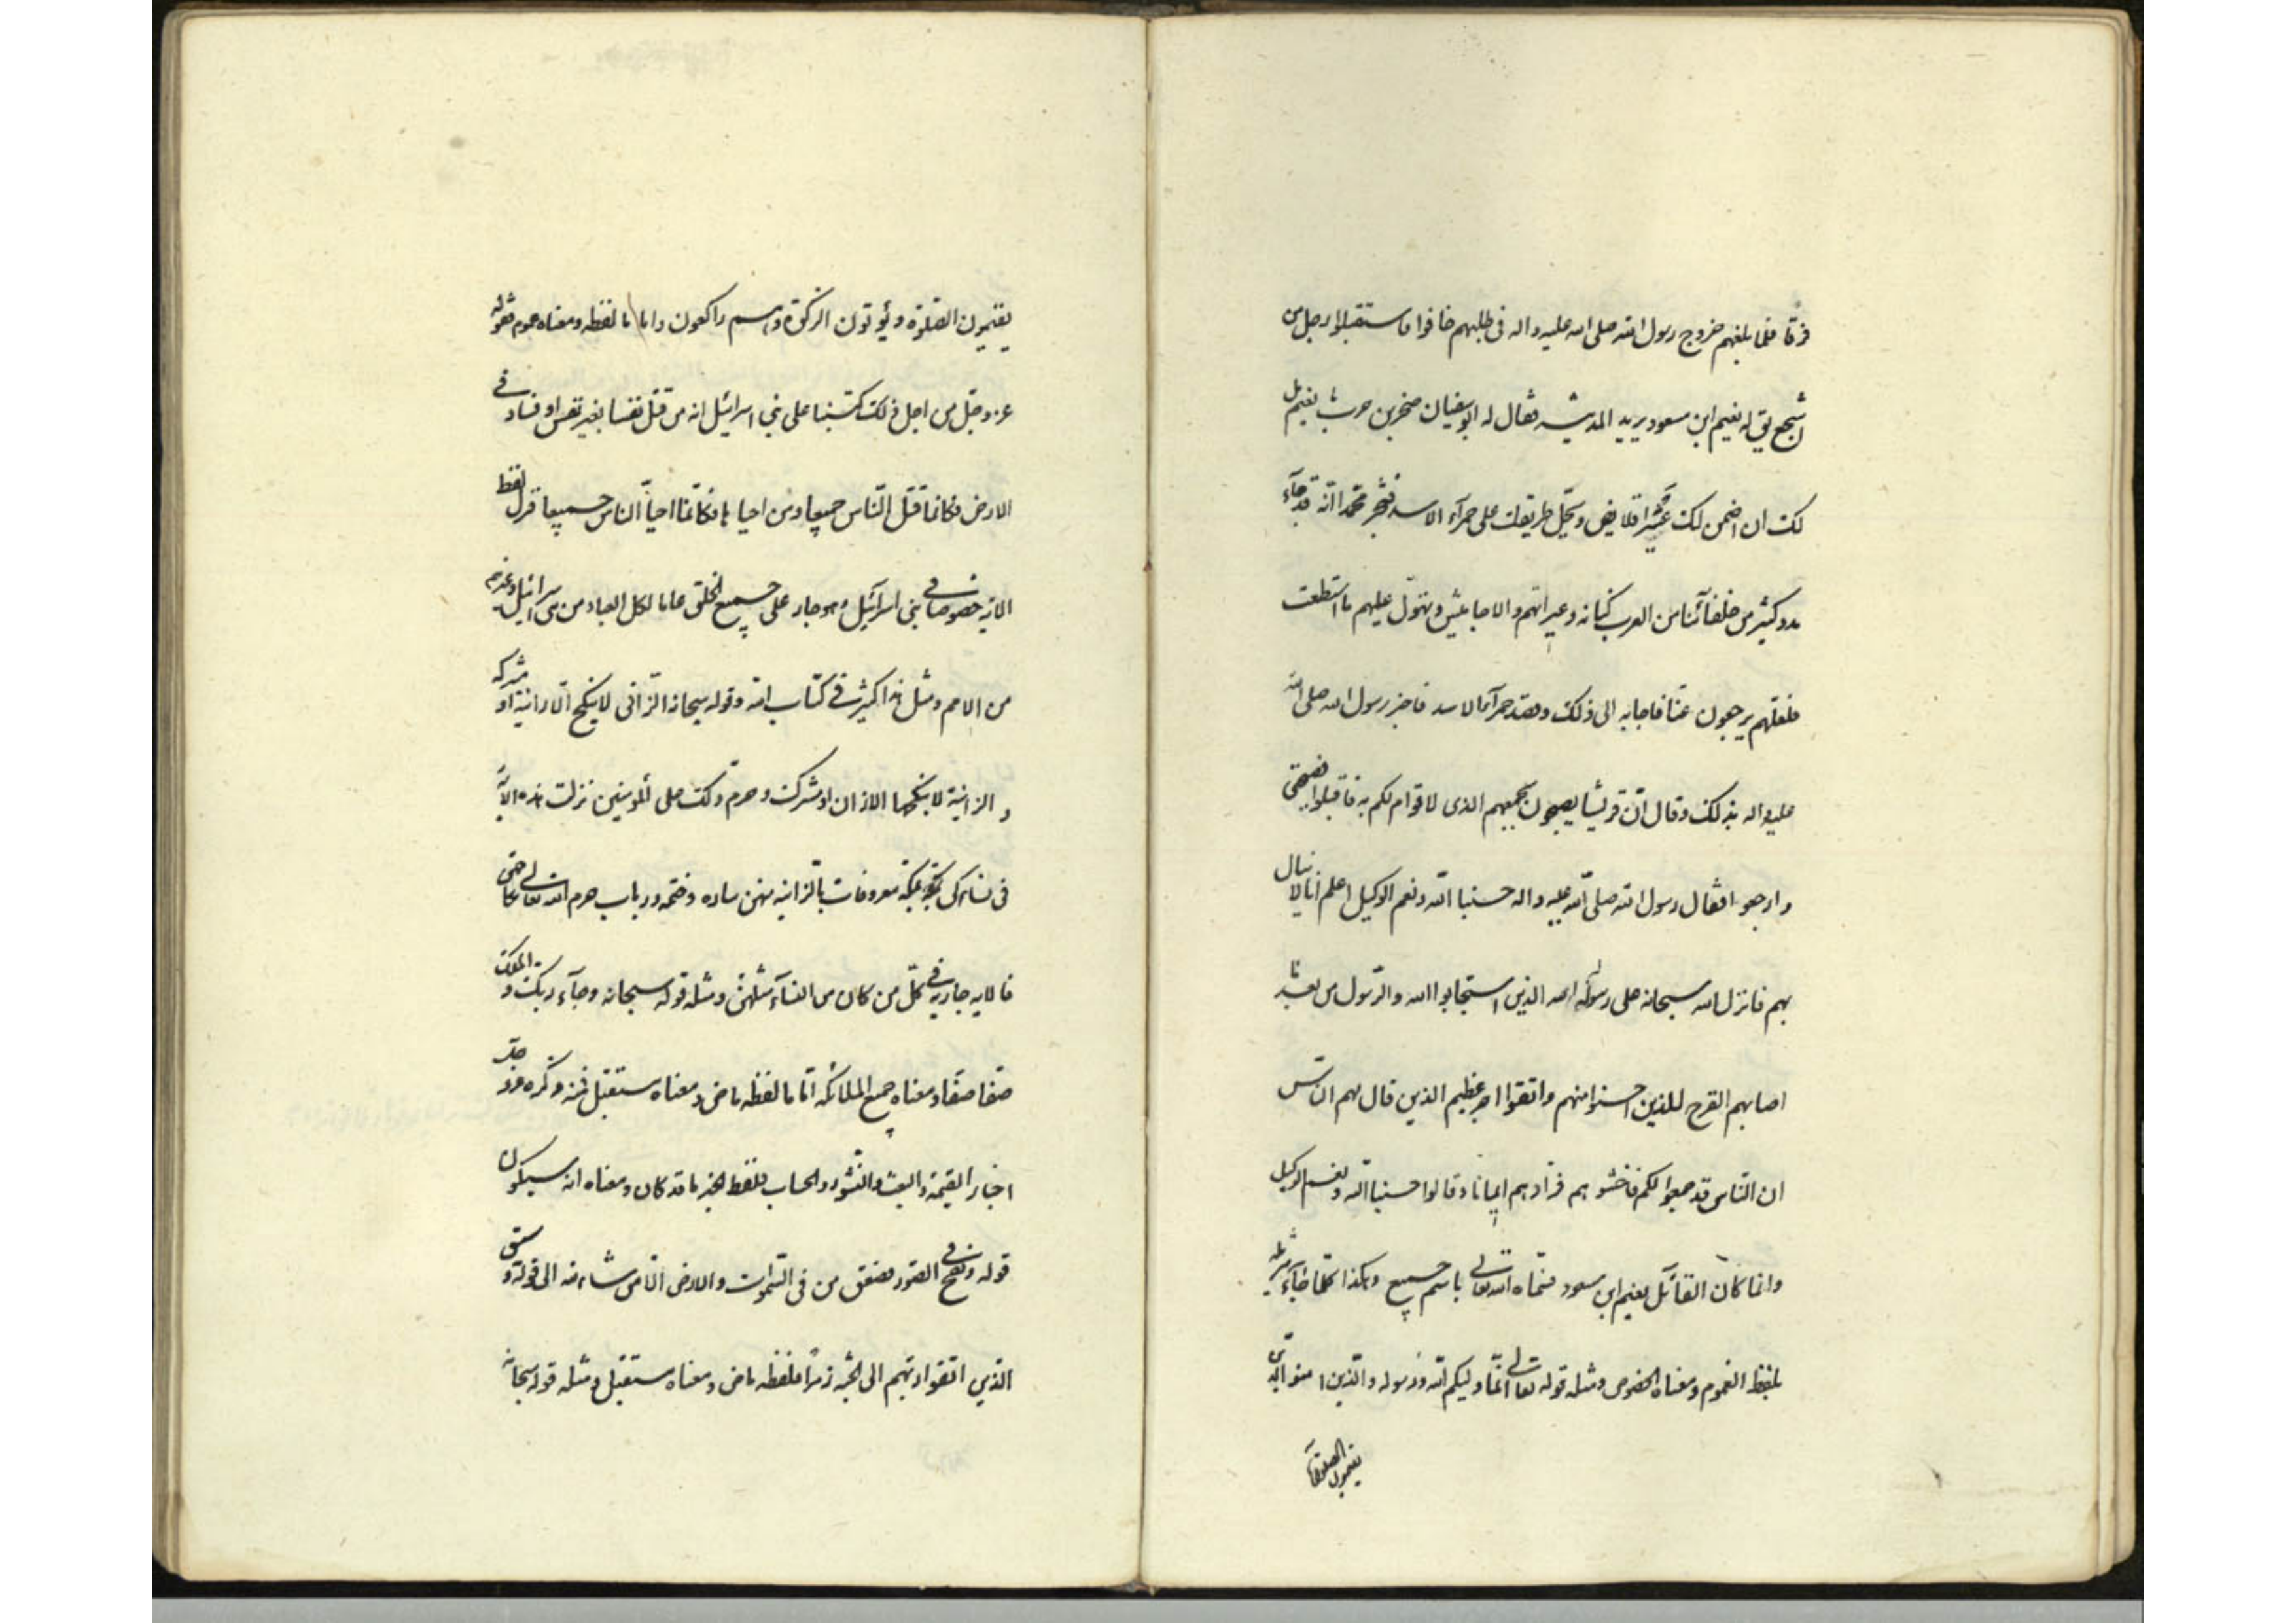 فرقا فلما بلغهم خروج رسول الله صلى الله عليه واله فى طلبهم خافوا فاستقبلوا رجل من
اشجع يق له نعيم ابن مسعود يريد المدينه فقال له ابو سفيان صخر بن حرب يا نعيم هل
لك ان اضمن لك عشر قلايص وتجعل طريقك على حمرآء الاسد فتخبر محمدا انه قد جآء
مدد كثير من حلفآئنا من العرب كنانه وعشيراتهم والاحابيش وتهول عليهم ما استطعت
فلعلهم يرجعون عنا فاجابه الى ذلك وقصد حمرآء الاسد فاخبر رسول الله صلى الله
عليه واله بذلك وقال ان قريشا يصبحون بجمعهم الذى لا قوام لكم به فاقبلوا نصيحتى
وارجعوا فقال رسول الله صلى الله عليه واله حسبنا الله ونعم الوكيل اعلم انا لا نبال
بهم فانزل الله سبحانه على رسوله الذين استجابوا الله والرسول من بعد ما
اصابهم القرح للذين احسنوا منهم واتقوا اجر عظيم الذين قال لهم الناس
ان الناس قد جمعوا لكم فاخشوهم فزادهم ايمانا وقالوا حسبنا الله ونعم الوكيل
وانما كان القائل نعيم ابن مسعود فسماه الله تعالى باسم جميع وهكذا كلما جآء تنزيله
بلفظ العموم ومعناه الخصوص ومثله قوله تعالى انما وليكم الله ورسوله والذين امنوا الذين
يقيمون الصلوة
يقيمون الصلوة ويؤتون الزكوة وهم راكعون واما ما لفظه ومعناه عموم فقوله
عز وجل من اجل ذلك كتبنا على بني اسرائيل انه من قتل نفسا بغير نفس او فساد في
الارض فكانما قتل الناس جميعا ومن احياها فكانما احيا الناس جميعا فنزل لفظ
الايه خصوصا في بنى اسرآئيل وهو جار على جميع الخلق عاما لكل العباد من بنى اسرائيل وغيرهم
من الامم ومثل هذا كثير في كتاب الله وقوله سبحانه الزانى لا ينكح الا زانية او مشركه
والزانية لا ينكحها الا زان او مشرك وحرم ذلك على المؤمنين نزلت هذه الآية
فى نساء كن بمكة معروفات بالزانيه منهن ساره وحنتمه ورباب حرم الله تعالى نكاحهن
فالايه جاريه في كل من كان من النسآء مثلهن ومثله قوله سبحانه وجآء ربك والملك
صفا صفا ومعناه جميع الملائكه اما ما لفظه ماض ومعناه مستقبل فمنه ذكره عز وجل
اخبار القيمة والبعث والنشور والحساب فلفظ الخبر ما قد كان ومعناه انه سيكون
قوله ونفخ في الصور فصعق من فى السموات والارض الا من شاء الله الى قوله وسيق
الذين اتقوا ربهم الى الجنه زمرا فلفظه ماض ومعناه مستقبل ومثله قوله سبحانه